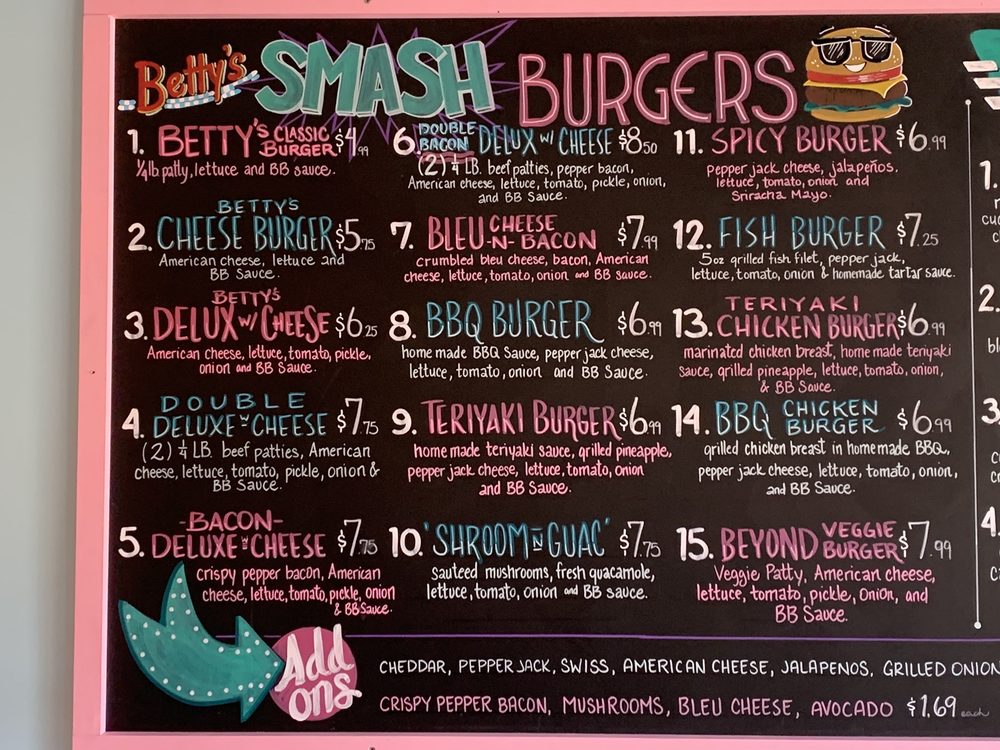 Betty's SMASH BURGERS
1. BETTY'S CLASSIC BURGER $4.99
1/4 lb patty, lettuce and BB sauce.
2. BETTY'S CHEESE BURGER $5.75
American cheese, lettuce and
BB Sauce.
3. BETTY'S DELUX W/ CHEESE $6.25
American cheese, lettuce, tomato, pickle,
onion and BB Sauce.
4. DOUBLE DELUXE W/ CHEESE $7.75
(2) 1/4 LB. beef patties, American
cheese, lettuce, tomato, pickle, onion &
BB Sauce.
5. -BACON- DELUXE W/ CHEESE $7.75
crispy pepper bacon, American
cheese, lettuce, tomato, pickle, onion
& BB Sauce.
6. DOUBLE BACON DELUX W/ CHEESE $8.50
(2) 1/4 LB. beef patties, pepper bacon,
American cheese, lettuce, tomato, pickle, onion,
and BB Sauce.
7. BLEU CHEESE -N- BACON $7.99
crumbled bleu cheese, bacon, American
cheese, lettuce, tomato, onion and BB sauce.
8. BBQ BURGER $6.99
home made BBQ Sauce, pepper jack cheese,
lettuce, tomato, onion and BB Sauce.
9. TERIYAKI BURGER $6.99
home made teriyaki sauce, grilled pineapple,
pepper jack cheese, lettuce, tomato, onion
and BB Sauce.
10. 'SHROOM N GUAC' $7.75
sauteed mushrooms, fresh guacamole,
lettuce, tomato, onion and BB sauce.
11. SPICY BURGER $6.99
pepper jack cheese, jalapeños.
lettuce, tomato, onion and
Sriracha Mayo.
12. FISH BURGER $7.25
5oz grilled fish filet, pepper jack,
lettuce, tomato, onion & homemade tartar sauce.
13. TERIYAKI CHICKEN BURGER $6.99
marinated chicken breast, home made teriyaki
sauce, grilled pineapple, lettuce, tomato, onion,
& BB Sauce.
14. BBQ CHICKEN BURGER $6.99
grilled chicken breast in homemade BBQ,
pepper jack cheese, lettuce, tomato, onion,
and BB Sauce.
15. BEYOND VEGGIE BURGER $7.99
Veggie Patty, American cheese,
lettuce, tomato, pickle, onion, and
BB Sauce.
Add ons
CHEDDAR, PEPPER JACK, SWISS, AMERICAN CHEESE, JALAPENOS, GRILLED ONION
CRISPY PEPPER BACON, MUSHROOMS, BLEU CHEESE, AVOCADO $1.69 each
1.
2.
3.
4.